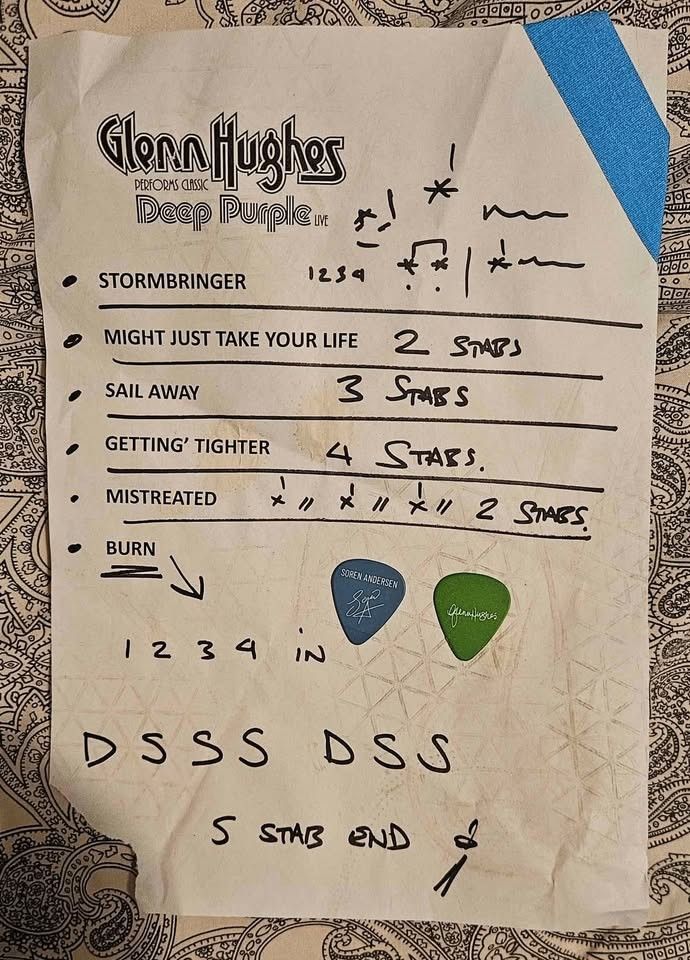 Glenn Hughes
PERFORMS CLASSIC
Deep Purple LIVE
• STORMBRINGER 1 2 3 4
• MIGHT JUST TAKE YOUR LIFE 2 STABS
• SAIL AWAY 3 STABS
• GETTING' TIGHTER 4 STABS.
• MISTREATED 2 STABS.
• BURN
SOREN ANDERSEN
Glenn Hughes
1 2 3 4 IN
D S S S D S S
5 STAB END